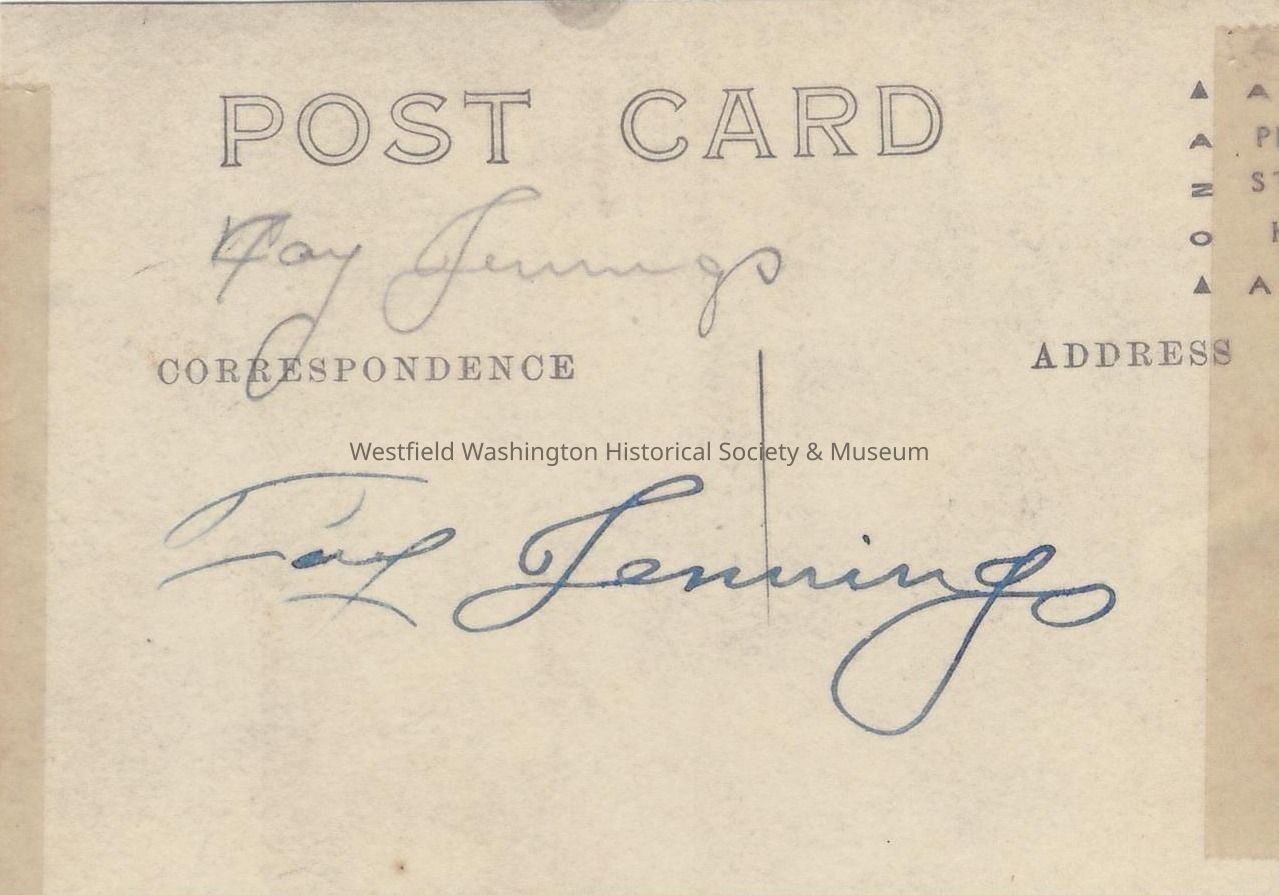 POST CARD
Fay Jennings
CORRESPONDENCE
ADDRESS
Westfield Washington Historical Society & Museum
Fay Jennings
▲ A N O ▲
A